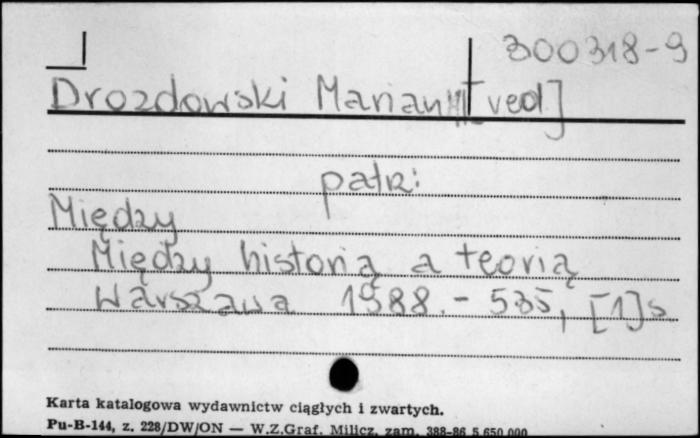 300318-9
Drozdowski Marian [red]
patrz:
Między
Między historią a teorią
Warszawa 1988. - 535, [1] s
Karta katalogowa wydawnictw ciągłych i zwartych.
Pu-B-144, z. 228/DW/ON — W.Z.Graf. Milicz. zam. 388-86 5.650.000